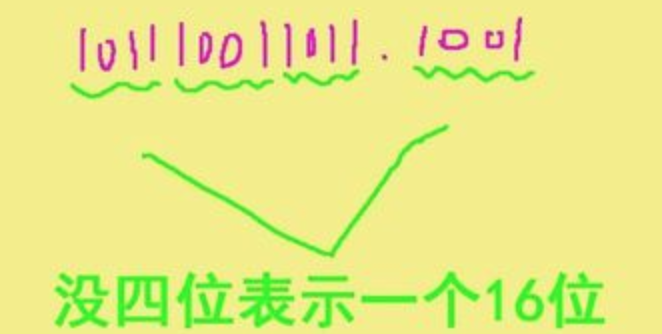 101110011011.1001
没四位表示一个16位